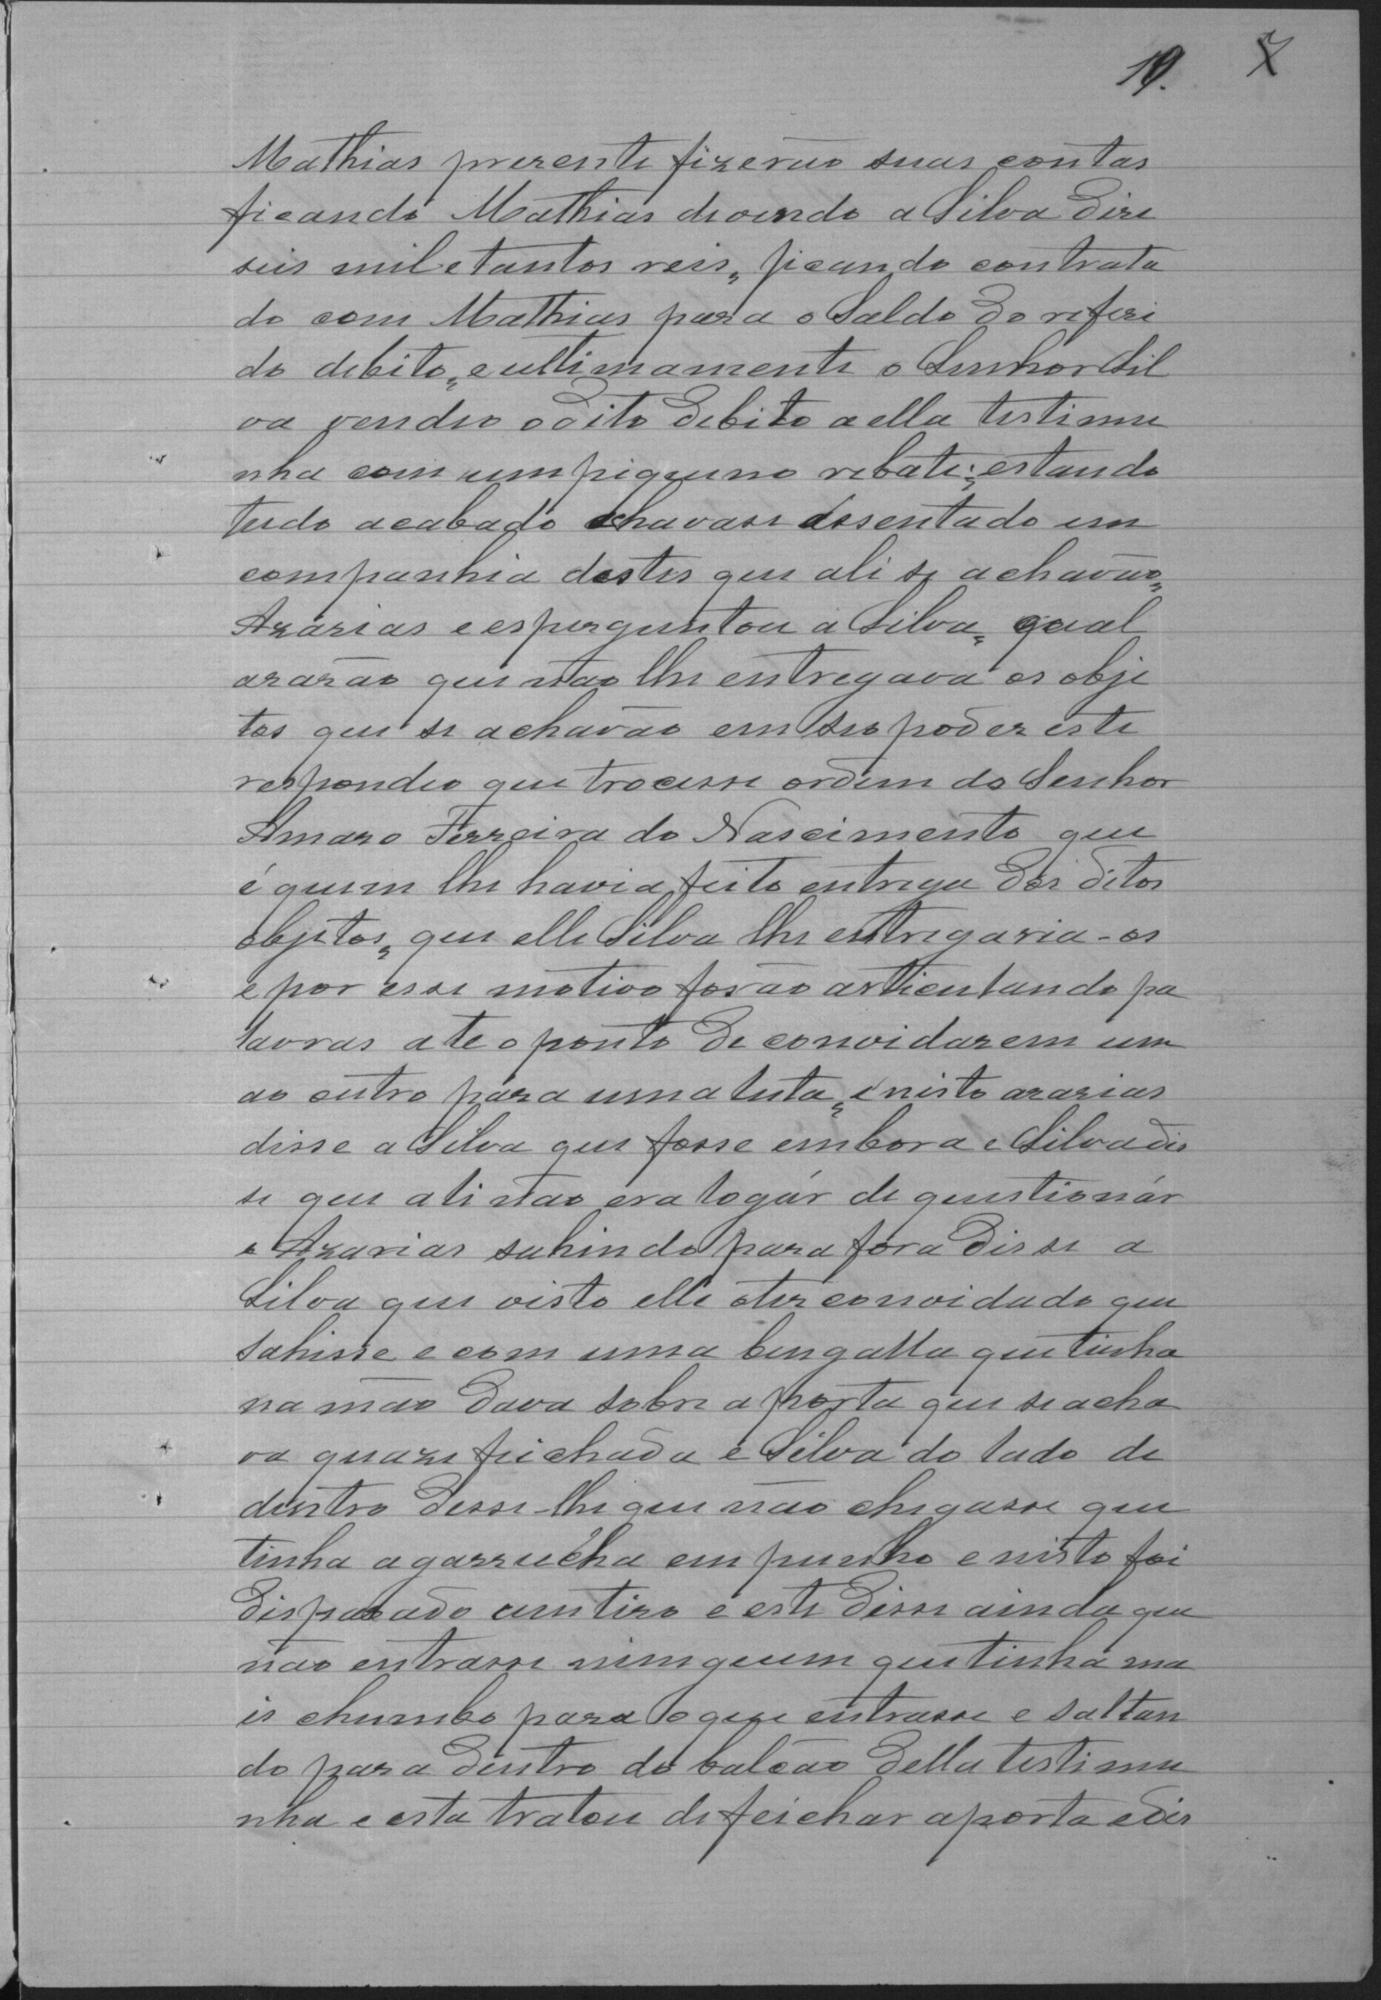 19. 7
Mathias prezente fizerão suas contas
ficando Mathias devendo a Silva dize
seis mil e tantos reis, ficando contrata
do com Mathias para o Saldo do referi
do debito, e ultimamente o Senhor Sil
va vendeo o dito debito a ella testimu
nha com um piqueno rebate; estando
tudo acabado chavase assentado em
companhia destes que ali se achavão,
Azarias e esperguntou a Silva, qual
arazão que não lhe entregava os obje
tos que se achavão em seo poder este
respondeo que trocesse ordem do Senhor
Amaro Ferreira do Nascimento que
é quem lhe havia feito entrega dos ditos
objetos, que elle Silva lhe entregaria-os
e por esse motivo forão articulando pa
lavras ate o ponto de convidarem um
ao outro para uma luta, e nisto azarias
disse a Silva que fosse embora e Silva dis
se que ali não era logár de questionár
e Azarias sahindo para fora disse a
Silva que visto elle oter convidado que
sahisse e com uma bengalla que tinha
na mão dava sobre a porta que se acha
va quaze feichada e Silva do lado de
dentro desse-lhe que não chegasse que
tinha a garrucha em punho e nisto foi
disparado um tiro e este disse ainda que
não entrasse nimguem que tinha ma
is chumbo para o que entrasse e saltan
do para dentro do balcão della testimu
nha e esta tratou de feichar a porta e dis